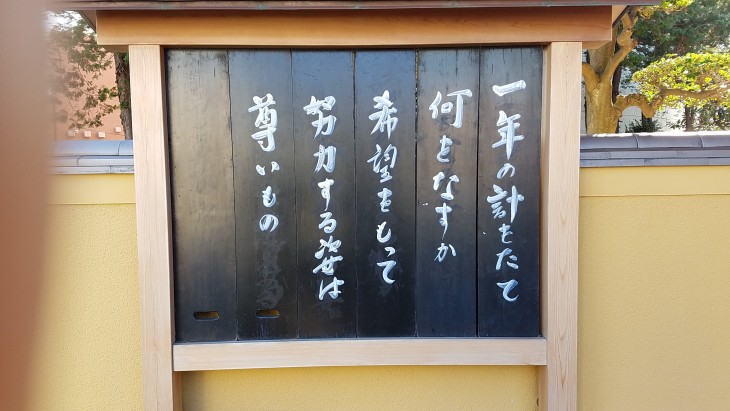 一年の計をたて
何となすか
希望をもって
努力する姿は
尊いもの